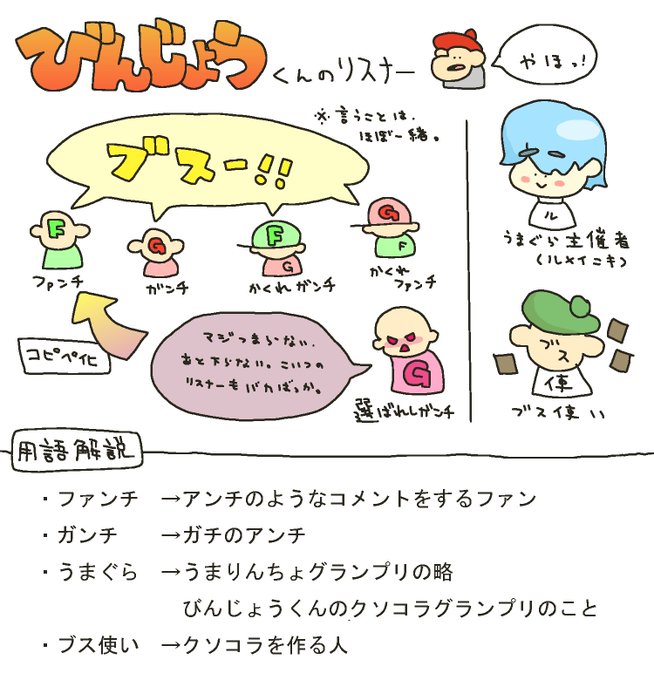 びんじょうくんのリスナー
やほっ!
※言うことは、
ほぼ一緒。
ブスー!!
F
G
F
G
G
F
ファンチ
ガンチ
かくれガンチ
かくれ
ファンチ
コピペ化
マジつまらない、
あと下らない。こいつの
リスナーもバカばっか。
G
選ばれしガンチ
ル
うまぐら主催者
(ルメイニキ)
ブス
使
ブス使い
用語解説
・ファンチ →アンチのようなコメントをするファン
・ガンチ →ガチのアンチ
・うまぐら →うまりんちょグランプリの略
びんじょうくんのクソコラグランプリのこと
・ブス使い →クソコラを作る人